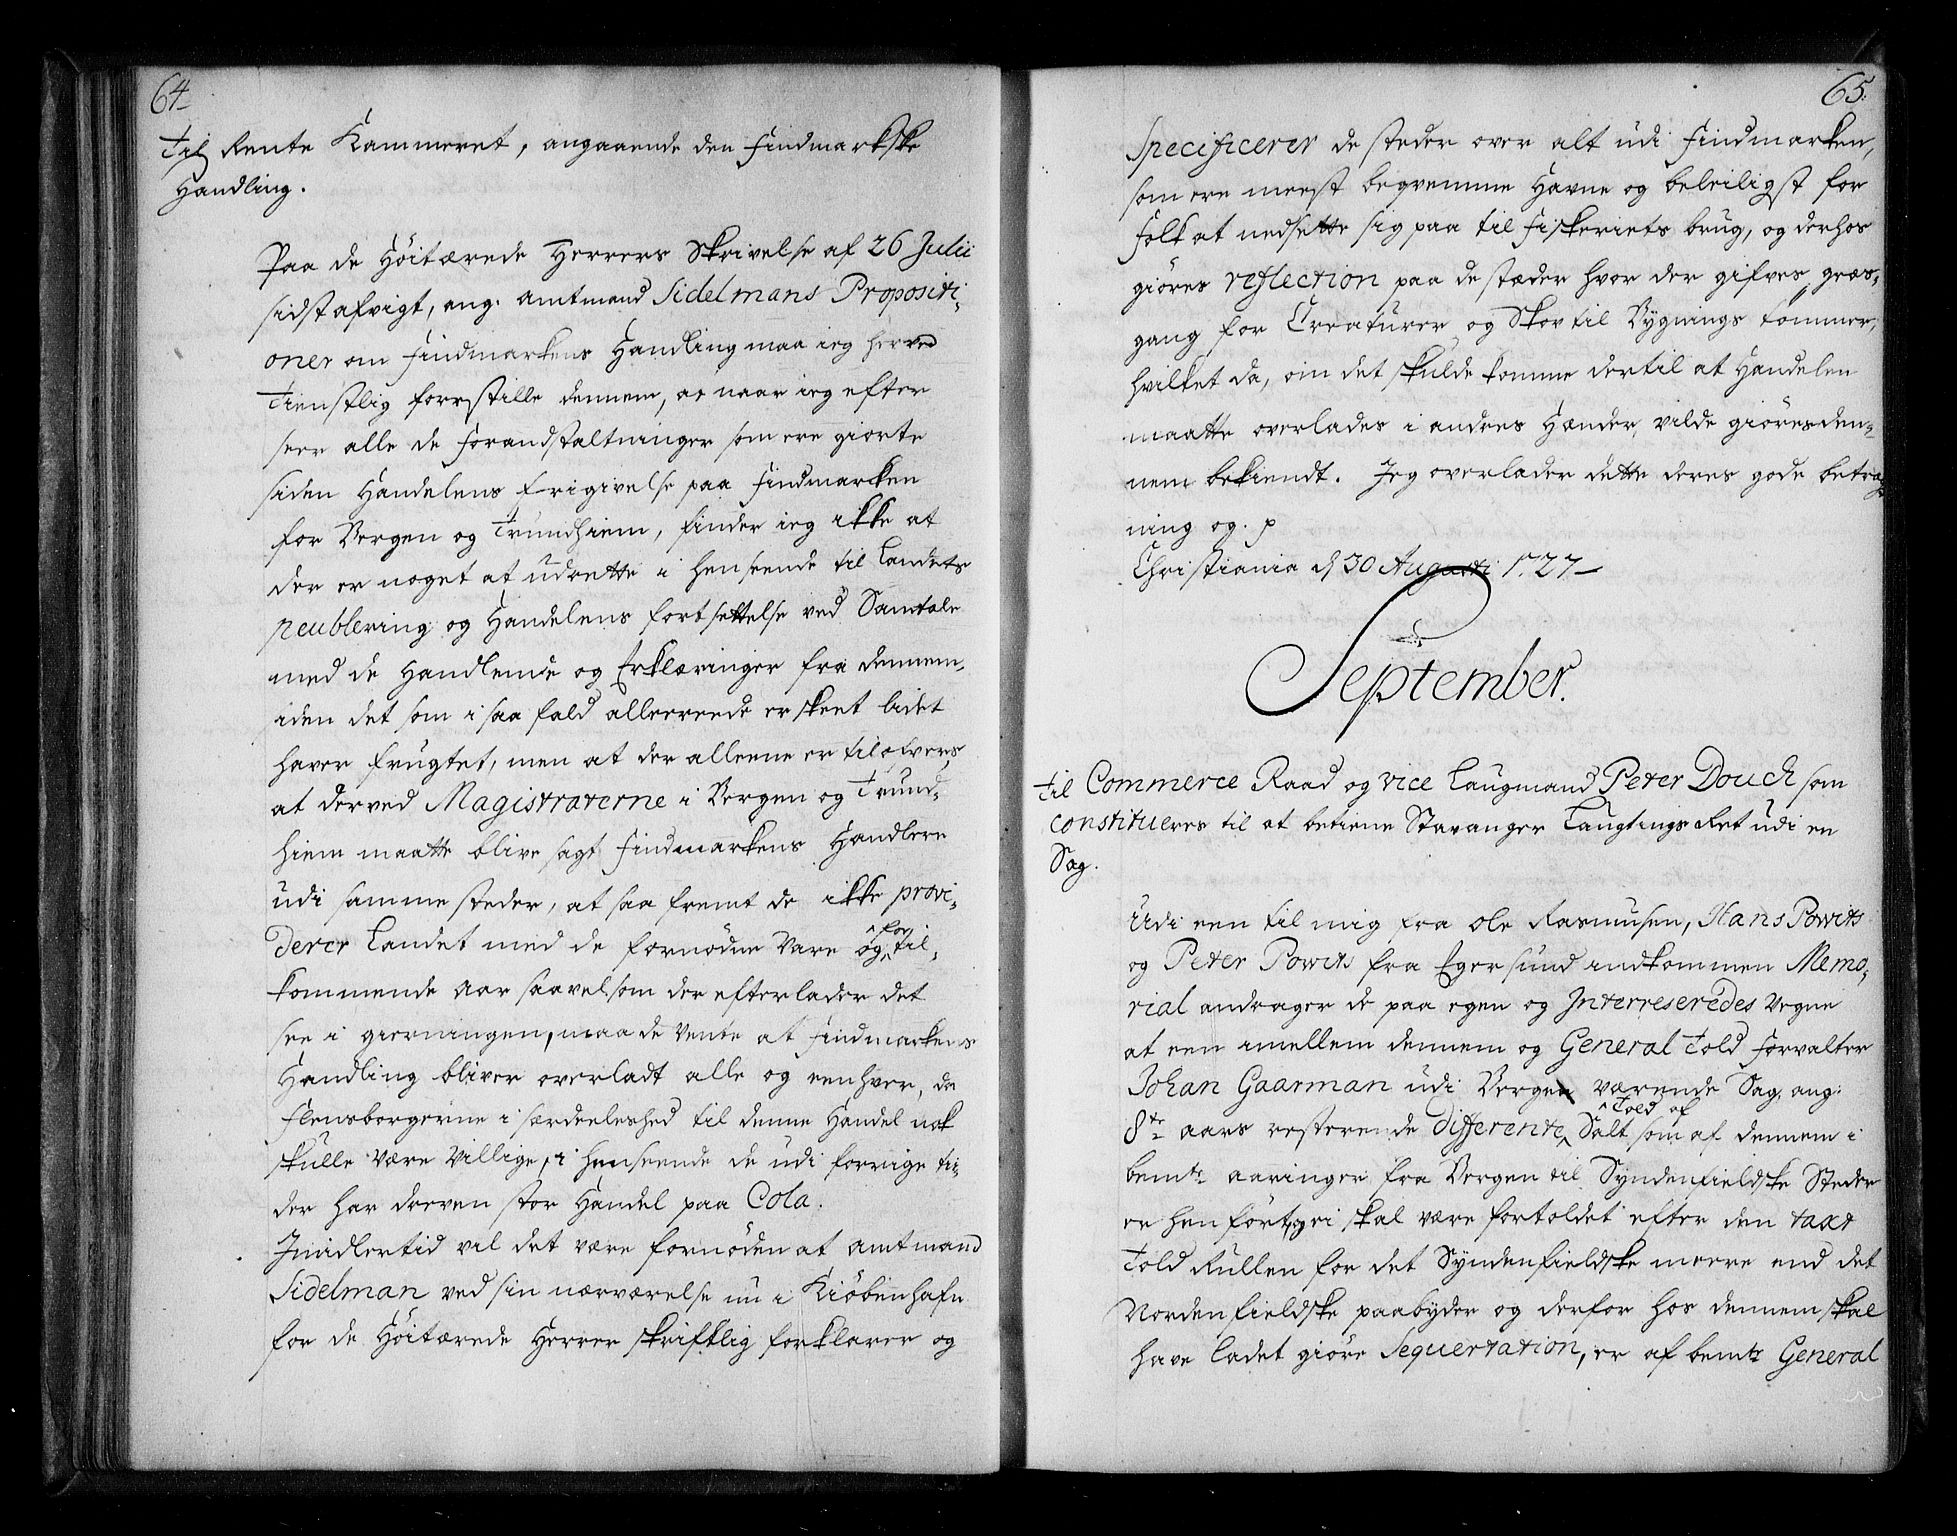 64
Til Rente Kammeret, angaaende den Findmarkske
Handling.
Paa de Höitærede Herrers Skrivelse af 26 Julii
sidstafvigt, ang. Amtmand Sidelmans Propositi-
oner om Findmarkens Handling maa ieg herved
tienstlig forestille dennem, at naar ieg efter
seer alle de Forandstaltninger som ere giorte
siden Handelens Frigivelse paa Findmarcken
for Bergen og Trundhiem, finder ieg ikke at
der er noget at udrette i henseende til Landets
peublering og Handelens fortsettelse ved Samtale
med de Handlende og Erklæringer fra dennem,
iden det som i saa fald allerreede er skeet lidet
haver frugtet, men at der alleene er tilofvers,
at derved Magistraterne i Bergen og Trund-
hiem maatte blive sagt Findmarkens Handlere
udi samme steder, at saa fremt de ikke provi-
derer Landet med de fornødne Vare og for til-
kommende Aar saavelsom der efterlader det
see i gierningen, maa de vente at Findmarkens
Handling bliver overladt alle og eenhver, da
Flensborgerne i særdeeleshed til denne Handel nok
skulle være villige, i henseende de udi forrige ti-
der har dreven stor Handel paa Cola.
Imidlertid vil det være fornøden at Amtmand
Sidelman ved sin nærværelse nu i Kiöbenhafn
for de Höitærede Herrer skriftlig forklarer og
65.
Specificerer de steder over alt udi Findmarken,
som ere meest beqvemme Havne og beleiligst for
Folk at nedsette sig paa til Fiskeriets brug, og derhos
giöres reflection paa de stæder hvor der gifves græs-
gang for Creaturer og Skov til Bygnings tömmer,
hvilket da, om det skulde komme dertil at Handelen
maatte overlades i andres Hænder, vilde giöres den-
nem bekiendt. Jeg overlader dette deres gode betrag
ning og. p
Christiania d 30 Augusti 1727
September.
Til Commerce Raad og vice Laugmand Peter Douch som
constitueres til at betiene Stavanger Laugtings Ret udi en
Sag.
Udi een til mig fra Ole Rasmusen, Hans Powits
og Peter Powits fra Egersund indkommen Memo-
rial andrager de paa egen og Interreseredes Vegne
at een imellem dennem og General Told Forvalter
Johan Gaarman udi Bergen værende Sag, ang:
8te aars resterende differente Told af Salt som af dennem i
bemte aaringer fra Bergen til Syndenfieldske Steder
er henfört, ei skal være fortoldet efter den taxt
Told Rullen for det Syndenfieldske meere end det
Nordenfieldske paabyder og derfor hos dennem skal
have ladet giöre Sequertation, er af bemte General